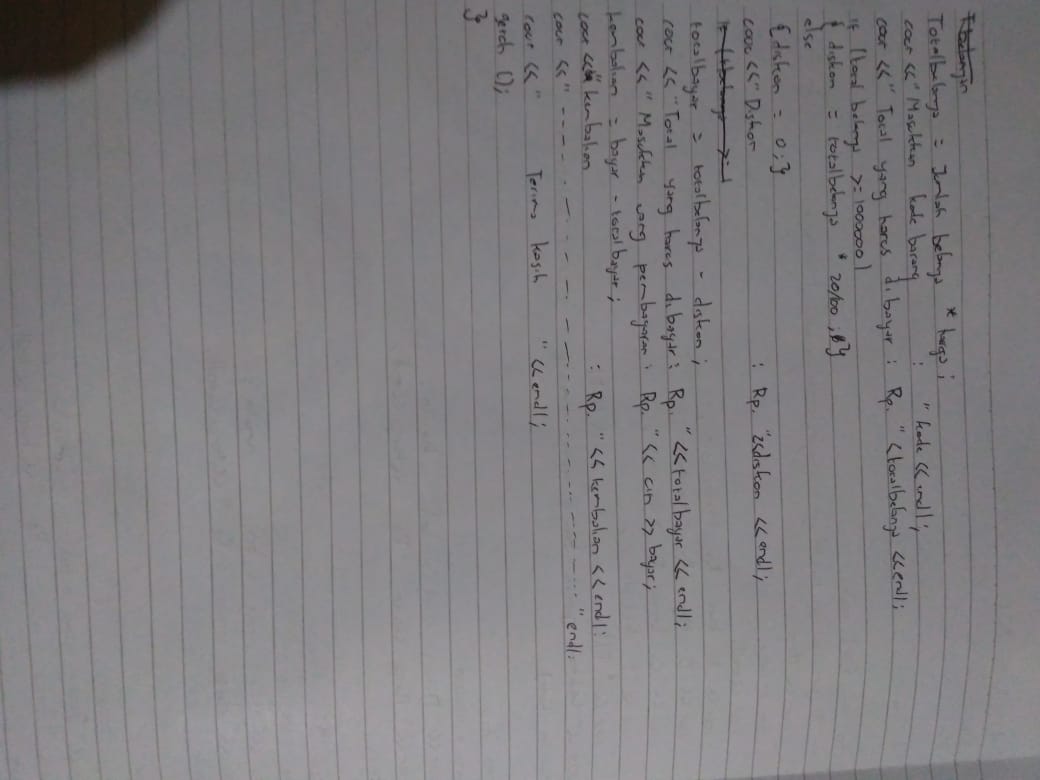 Totalbelanja = Jumlah belanja * harga;
cout << "Masukkan kode barang : " kode << endl;
cout << "Total yang harus dibayar : Rp. " < totalbelanja << endl;
if (total belanja >= 1000000)
{ diskon = totalbelanja * 20/100; }
else
{ diskon = 0; }
cout << "Diskon : Rp. " << diskon << endl;
totalbayar = totalbelanja - diskon;
cout << "Total yang harus dibayar : Rp. " << totalbayar << endl;
cout << "Masukkan uang pembayaran : Rp. " << cin >> bayar;
kembalian = bayar - totalbayar;
cout << "kembalian : Rp. " << kembalian << endl;
cout << " - - - - - - - - - - - - - - - - - - - - " endl;
cout << " Terima kasih " << endl;
getch ();
}